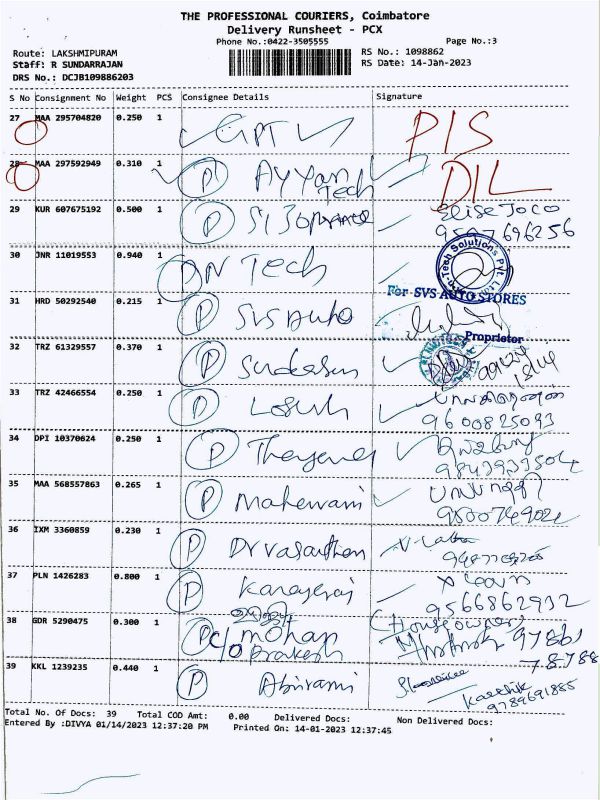 THE PROFESSIONAL COURIERS, Coimbatore
Delivery Runsheet - PCX
Phone No.:0422-3505555
Page No.:3
Route: LAKSHMIPURAM
RS No.: 1098862
Staff: R SUNDARRAJAN
RS Date: 14-Jan-2023
DRS No.: DCJB109886203
S No Consignment No Weight PCS Consignee Details Signature
27 MAA 295704820 0.250 1 GPT PIS
28 MAA 297592949 0.310 1 P Ayyan Tech DIL
29 KUR 607675192 0.500 1 P
30 JNR 11019553 0.940 1 DN Tech
31 HRD 50292540 0.215 1 P SVS Auto
For SVS AUTO STORES
Proprietor
32 TRZ 61329557 0.370 1 P
33 TRZ 42466554 0.250 1 P
9600825093
34 DPI 10370624 0.250 1 P
35 MAA 568557863 0.265 1 P Maheswari
36 IXM 3360859 0.230 1 P Dr Vasanthan
37 PLN 1426283 0.800 1 P Kanagaraj
9566862932
38 GDR 5290475 0.300 1 P c/o Mohan Prakash (House owner)
39 KKL 1239235 0.440 1 P Abirami
Karthik
9789691885
Total No. Of Docs: 39 Total COD Amt: 0.00 Delivered Docs: Non Delivered Docs:
Entered By :DIVYA 01/14/2023 12:37:20 PM Printed On: 14-01-2023 12:37:45